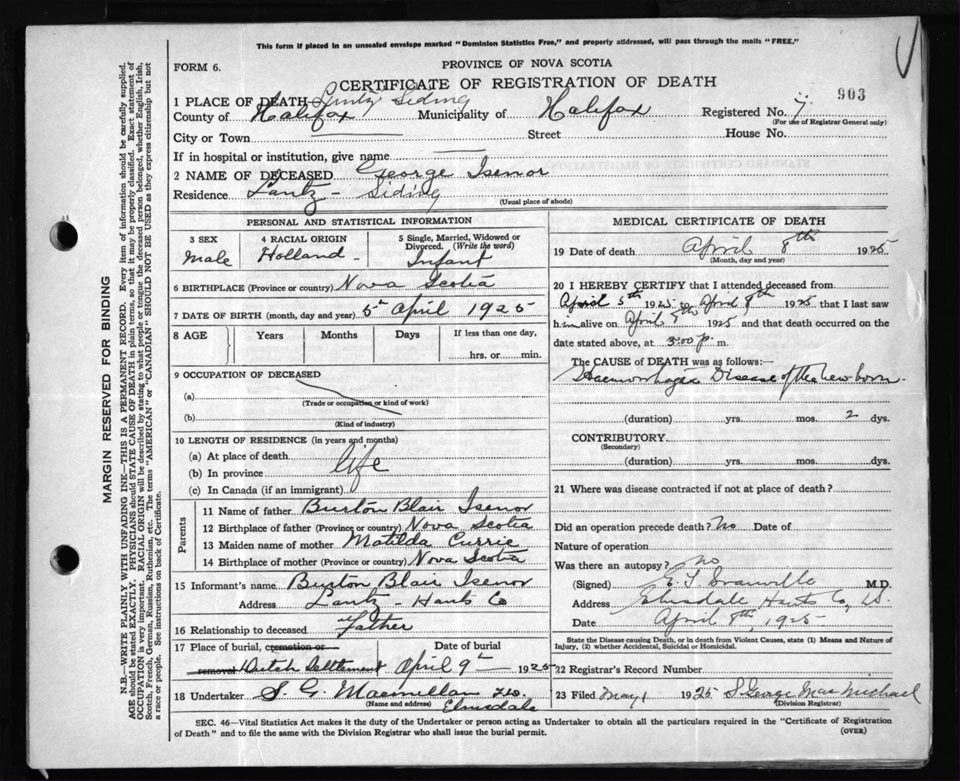 This form if placed in an unsealed envelope marked "Dominion Statistics Free," and properly addressed, will pass through the mails "FREE."
FORM 6.
PROVINCE OF NOVA SCOTIA
CERTIFICATE OF REGISTRATION OF DEATH
903
1 PLACE OF DEATH Lantz Siding
County of Halifax Municipality of Halifax Registered No. 7
(For use of Registrar General only)
City or Town Street House No.
If in hospital or institution, give name
2 NAME OF DECEASED George Isenor
Residence Lantz - Siding
(Usual place of abode)
PERSONAL AND STATISTICAL INFORMATION
3 SEX 4 RACIAL ORIGIN 5 Single, Married, Widowed or Divorced. (Write the word)
Male Holland - Infant
6 BIRTHPLACE (Province or country) Nova Scotia
7 DATE OF BIRTH (month, day and year) 5th April 1925
8 AGE Years Months Days If less than one day,
hrs. or min.
9 OCCUPATION OF DECEASED
(a)
(Trade or occupation or kind of work)
(b)
(Kind of industry)
10 LENGTH OF RESIDENCE (in years and months)
(a) At place of death
(b) In province life
(c) In Canada (if an immigrant)
Parents
11 Name of father Burton Blair Isenor
12 Birthplace of father (Province or country) Nova Scotia
13 Maiden name of mother Matilda Currie
14 Birthplace of mother (Province or country) Nova Scotia
15 Informant's name Burton Blair Isenor
Address Lantz - Hants Co
16 Relationship to deceased Father
17 Place of burial, cremation or Date of burial
removal Dutch Settlement April 9th 1925
18 Undertaker S. G. Macmillan
(Name and address) Elmsdale
MEDICAL CERTIFICATE OF DEATH
19 Date of death April 8th 1925
(Month, day and year)
20 I HEREBY CERTIFY that I attended deceased from
April 5th 1925 to April 8th 1925 that I last saw
him alive on April 8th 1925 and that death occurred on the
date stated above, at 3:00 p. m.
The CAUSE of DEATH was as follows:
Haemorrhagic Disease of the new born.
(duration) yrs. mos. 2 dys.
CONTRIBUTORY
(Secondary)
(duration) yrs. mos. dys.
21 Where was disease contracted if not at place of death?
Did an operation precede death? No Date of
Nature of operation
Was there an autopsy? no
(Signed) M.D.
Address Elmsdale Hants Co, N.S.
Date April 8th, 1925
State the Disease causing Death, or in death from Violent Causes, state (1) Means and Nature of
Injury, (2) whether Accidental, Suicidal or Homicidal.
22 Registrar's Record Number
23 Filed May 1 1925 S George MacMichael
(Division Registrar)
SEC. 46—Vital Statistics Act makes it the duty of the Undertaker or person acting as Undertaker to obtain all the particulars required in the "Certificate of Registration
of Death" and to file the same with the Division Registrar who shall issue the burial permit.
(OVER)
MARGIN RESERVED FOR BINDING
N.B.—WRITE PLAINLY WITH UNFADING INK—THIS IS A PERMANENT RECORD. Every item of information should be carefully supplied.
AGE should be stated EXACTLY. PHYSICIANS should STATE CAUSE OF DEATH in plain terms, so that it may be properly classified. Exact statement of
OCCUPATION is very important. RACIAL ORIGIN will be described by stating to what people or tongue the deceased person belonged, whether English, Irish,
Scotch, French, German, Russian, Ruthenian, etc. The terms "AMERICAN" or "CANADIAN" SHOULD NOT BE USED as they express citizenship but not
a race or people. See instructions on back of Certificate.